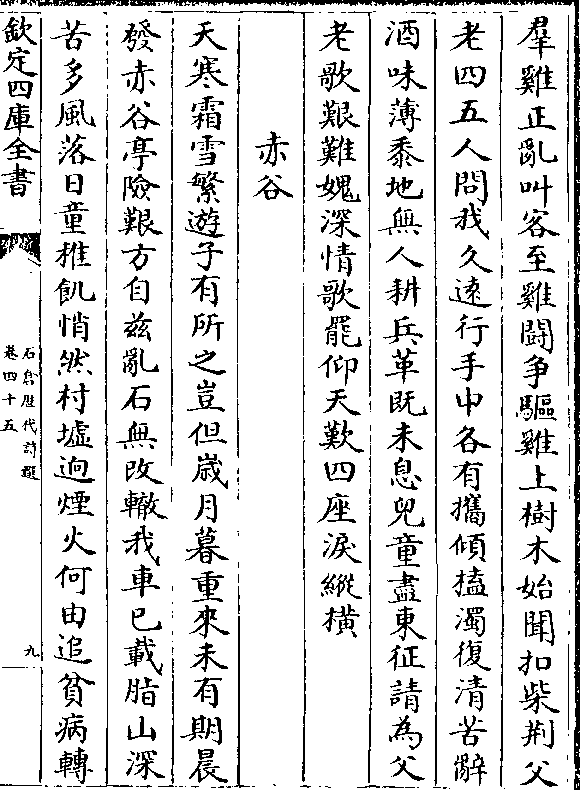 羣雞正亂叫客至雞鬪争驅雞上樹木始聞扣柴荆父
老四五人問我久遠行手中各有攜傾榼濁復清苦辭
酒味薄黍地無人耕兵革既未息兒童盡東征請為父
老歌艱難媿深情歌罷仰天歎四座淚縱横
赤谷
天寒霜雪繁遊子有所之豈但歲月暮重來未有期晨
發赤谷亭險艱方自兹亂石無改轍我車已載脂山深
苦多風落日童稚飢悄然村墟迥煙火何由追貧病轉
欽定四庫全書
石倉歷代詩選
卷四十五
九